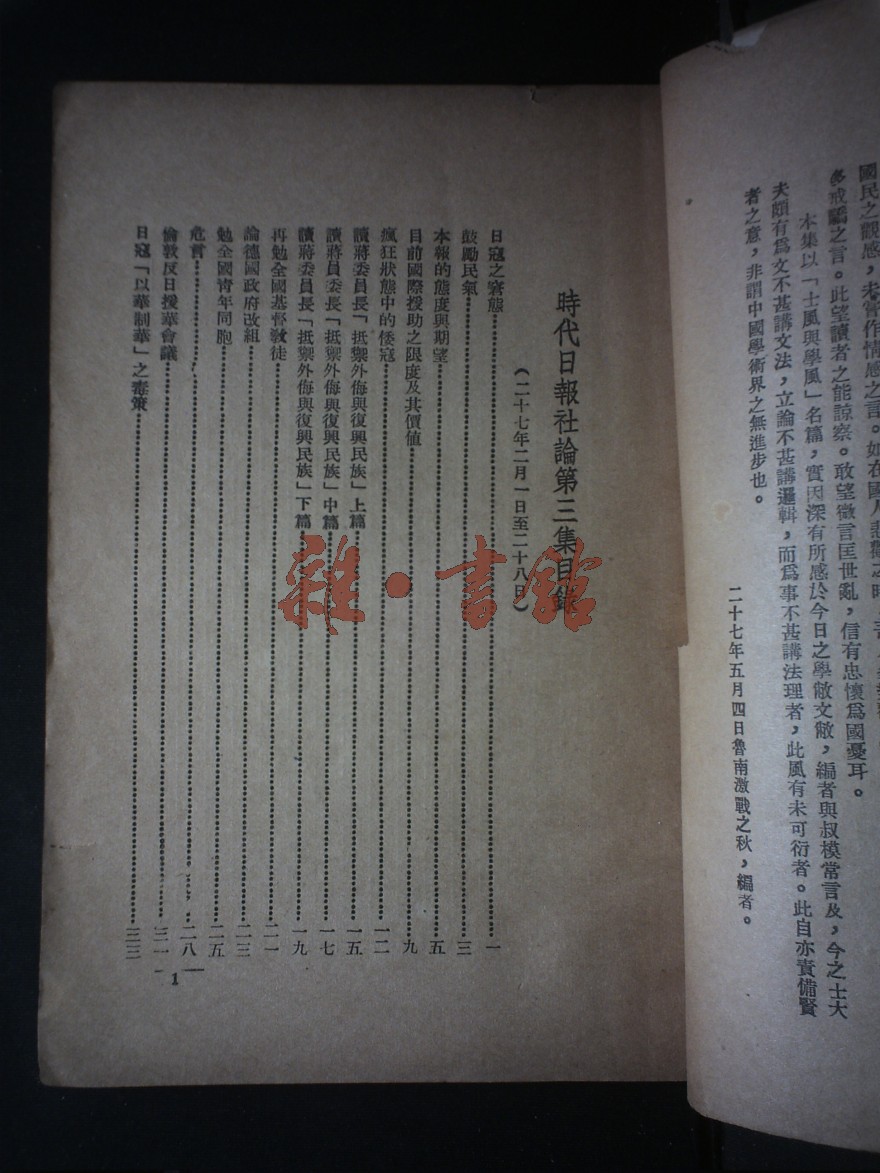 國民之觀感，未嘗作情感之言。如在國人悲觀之時，
多戒驕之言。此望讀者之能諒察。敢望微言匡世亂，信有忠懷爲國憂耳。
本集以「士風與學風」名篇，實因深有所感於今日之學敝文敝，編者與叔模常言及，今之士大
夫頗有爲文不甚講文法，立論不甚講邏輯，而爲事不甚講法理者，此風有未可衍者。此自亦責備賢
者之意，非謂中國學術界之無進步也。
二十七年五月四日魯南激戰之秋，編者。
時代日報社論第三集目錄
（二十七年二月一日至二十八日）
日寇之窘態 一
鼓勵民氣 三
本報的態度與期望 五
目前國際援助之限度及其價値 九
瘋狂狀態中的倭寇 一二
讀蔣委員長「抵禦外侮與復興民族」上篇 一五
讀蔣委員長「抵禦外侮與復興民族」中篇 一七
讀蔣委員長「抵禦外侮與復興民族」下篇 一九
再勉全國基督敎徒 二一
論德國政府改組 二三
勉全國靑年同胞 二五
危言 二八
倫敦反日援華會議 三一
日寇「以華制華」之毒策 三三
1
雜·書館